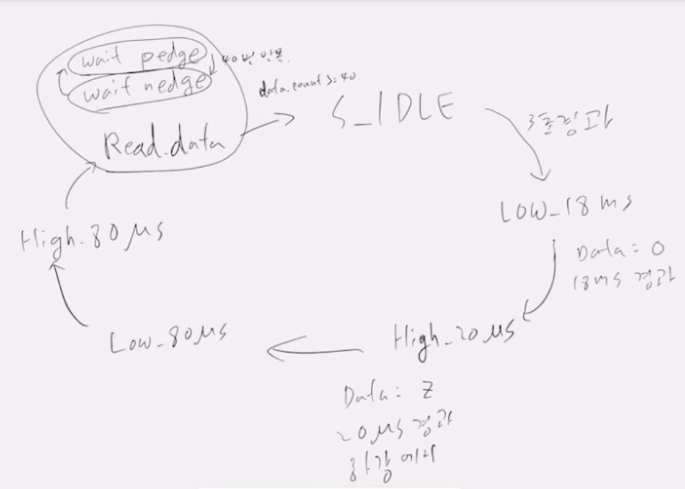 wait pedge
wait nedge
40번 반복.
data.count >= 40
Read.data
S_IDLE
3초경과
LOW_18ms
Data = 0
18ms 경과
High_20μs
Data = Z
20μs 경과
하강 에지
Low_80μs
High_80μs